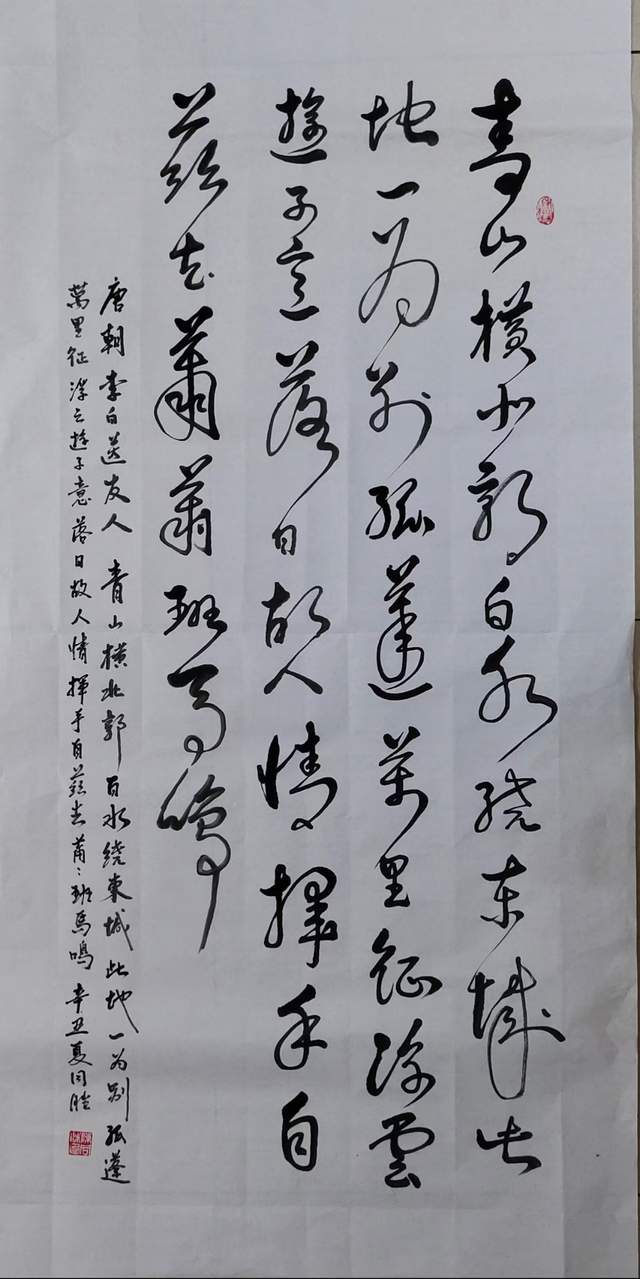 青山横北郭白水绕东城此
地一为别孤蓬萬里征浮雲
遊子意落日故人情揮手自
兹去萧萧班马鸣
唐朝李白送友人 青山横北郭白水绕東城此地一为别孤蓬
萬里征浮云遊子意落日故人情揮手自兹去萧〻班馬鳴 辛丑夏同